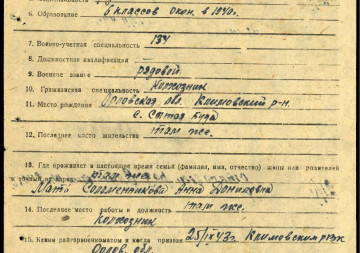 6. Образование 6 классов окон. в 1940 г.
7. Военно-учетная специальность 134
8. Должностная квалификация
9. Военное звание рядовой
10. Гражданская специальность Колхозник
11. Место рождения Орловская обл. Климовский р-н
с. Сытая Буда
12. Последнее место жительства там же.
13. Где проживает в настоящее время семья (фамилия, имя, отчество) жены или родителей
там же
Мать Соломенникова Анна
14. Последнее место работы и должность там же.
Колхозник
15. Каким райгорвоенкоматом и когда призван 25/IX 43 г. Климовским рвк
Орлов. обл.